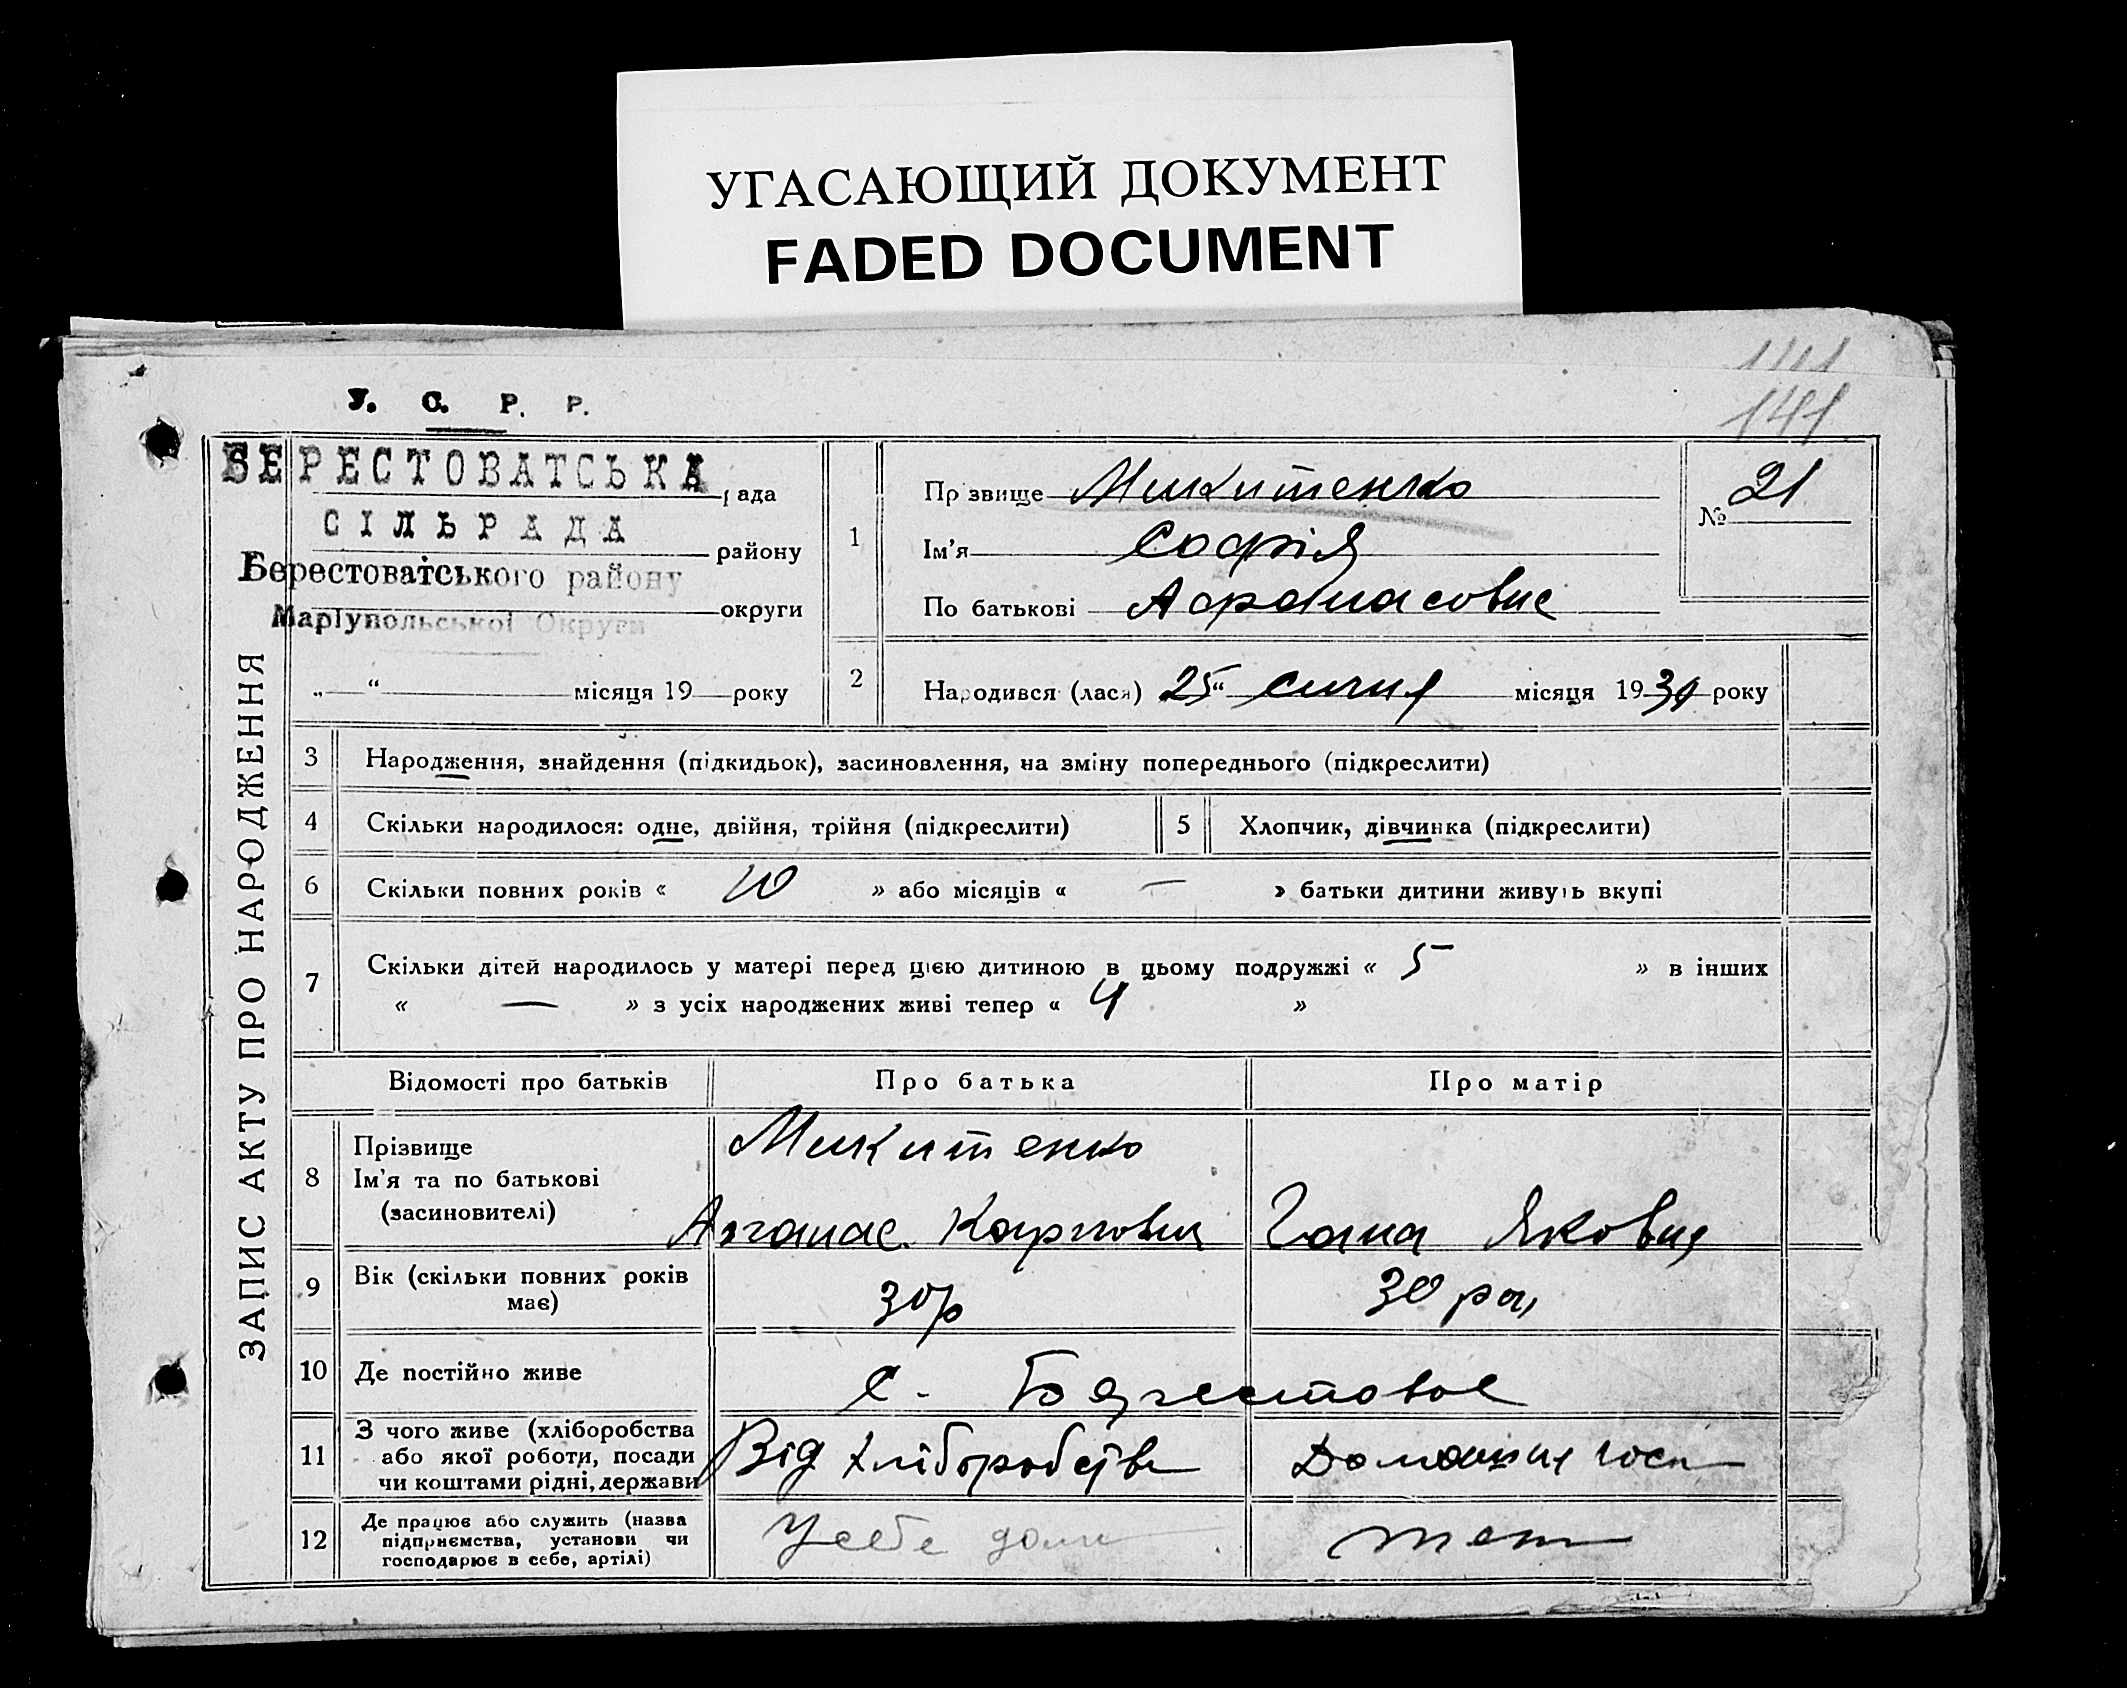 УГАСАЮЩИЙ ДОКУМЕНТ
FADED DOCUMENT
141
141
У. С. Р. Р.
БЕРЕСТОВАТСЬКА рада
СІЛЬРАДА району
Берестоватського району
Маріупольської Округи округи
„ “ місяця 19 року
1
Прізвище Микитенко
Ім'я Софія
По батькові Афанасовна
№ 21
2
Народився (лася) 25 “ січня місяця 1930 року
ЗАПИС АКТУ ПРО НАРОДЖЕННЯ
3 Народження, знайдення (підкидьок), засиновлення, на зміну попереднього (підкреслити)
4 Скільки народилося: одне, двійня, трійня (підкреслити) 5 Хлопчик, дівчинка (підкреслити)
6 Скільки повних років « 10 » або місяців « — » батьки дитини живуть вкупі
7 Скільки дітей народилось у матері перед цією дитиною в цьому подружжі « 5 » в інших
« — » з усіх народжених живі тепер « 4 »
Відомості про батьків Про батька Про матір
8 Прізвище
Ім'я та по батькові
(засиновителі)
Микитенко
Афанас Карпович Гана Яковна
9 Вік (скільки повних років
має)
30 р 30 рок
10 Де постійно живе с. Берестовое
11 З чого живе (хліборобства
або якої роботи, посади
чи коштами рідні, держави
Від хліборобств Домашня госп
12 Де працює або служить (назва
підприємства, установи чи
господарює в себе, артілі)
У себе дома теж